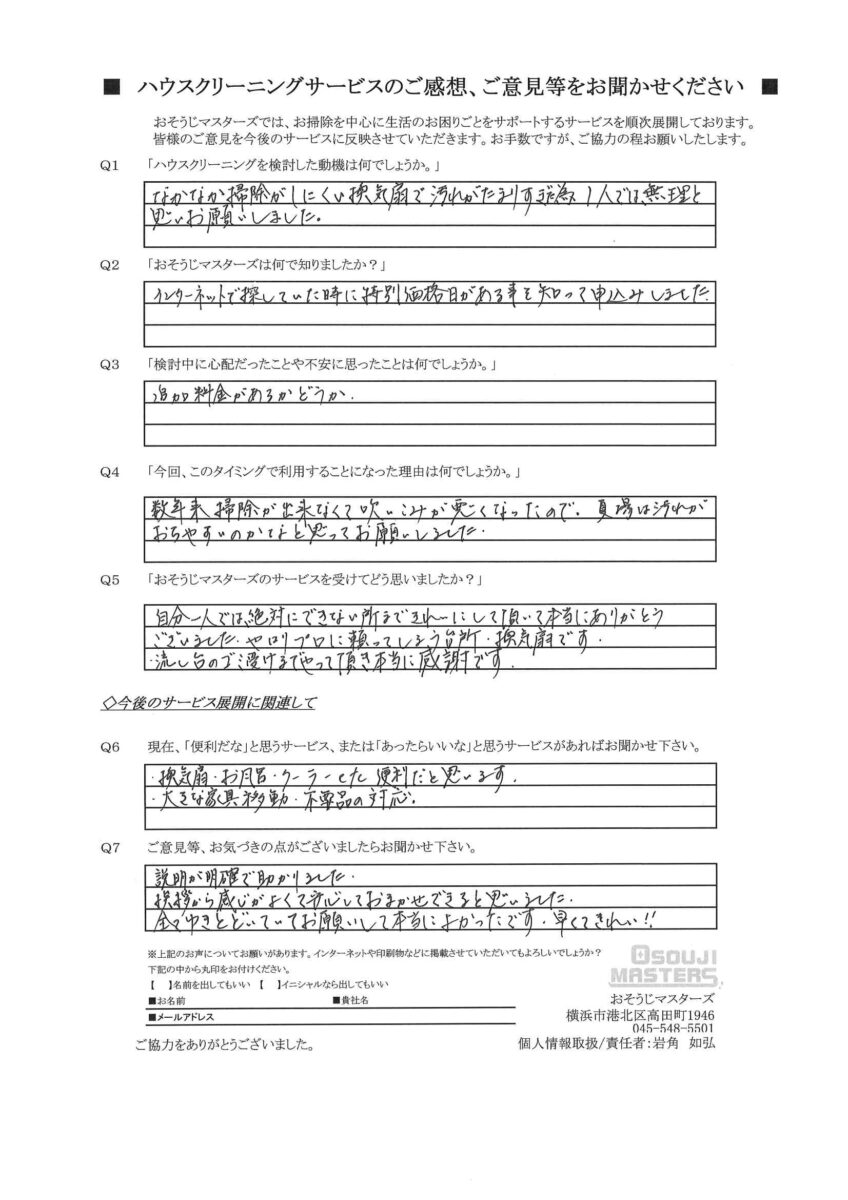 ■ ハウスクリーニングサービスのご感想、ご意見等をお聞かせください ■
おそうじマスターズでは、お掃除を中心に生活のお困りごとをサポートするサービスを順次展開しております。
皆様のご意見を今後のサービスに反映させていただきます。お手数ですが、ご協力の程お願いしたします。
Q1 「ハウスクリーニングを検討した動機は何でしょうか。」
なかなか掃除がしにくい換気扇で汚れがたまりすぎ為 1人では無理と
思いお願いしました。
Q2 「おそうじマスターズは何で知りましたか？」
インターネットで探していた時に特別価格日がある事を知って申込みしました
Q3 「検討中に心配だったことや不安に思ったことは何でしょうか。」
追加料金があるかどうか.
Q4 「今回、このタイミングで利用することになった理由は何でしょうか。」
数年来 掃除が出来なくて吹いこみが悪くなったので。 夏場は汚れが
おちやすいのかなと思ってお願いしました.
Q5 「おそうじマスターズのサービスを受けてどう思いましたか？」
自分一人では絶対にできない所まできれーにして頂いて本当にありがとう
ございました. やはりプロに頼ってしまう台所・換気扇です.
・流し台のゴミ受けまでやって頂き本当に感謝です.
◇今後のサービス展開に関連して
Q6 現在、「便利だな」と思うサービス、または「あったらいいな」と思うサービスがあればお聞かせ下さい。
・換気扇・お風呂・クーラー 便利だと思います.
・大きな家具移動・不要品の対応.
Q7 ご意見等、お気づきの点がございましたらお聞かせ下さい。
説明が明確で助かりました.
挨拶から感じがよくて安心しておまかせできると思いました.
全てゆきとどいていてお願いして本当によかったです. 早くてきれい!!
※上記のお声についてお願いがあります。インターネットや印刷物などに掲載させていただいてもよろしいでしょうか？
下記の中から丸印をお付けください。
【　】名前を出してもいい 【　】イニシャルなら出してもいい
■お名前 ■貴社名
■メールアドレス
ご協力をありがとうございました。
OSOUJI
MASTERS
おそうじマスターズ
横浜市港北区高田町1946
045-548-5501
個人情報取扱/責任者:岩角 如弘